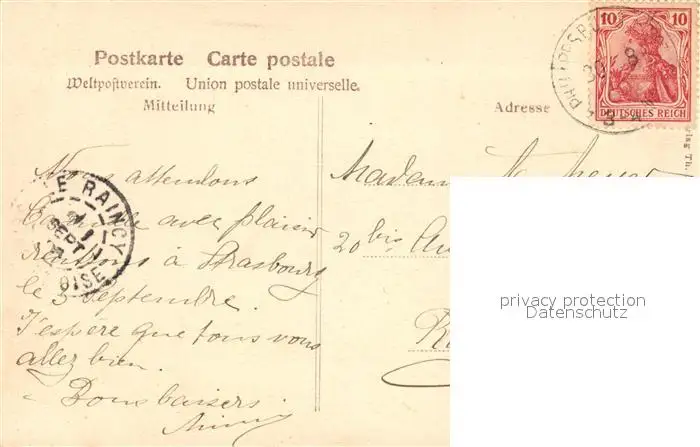 Postkarte Carte postale
Weltpostverein. Union postale universelle.
Mitteilung
Adresse
10 10
DEUTSCHES REICH
LE RAINCY
SEPT
OISE
Nous attendons
avec plaisir
à Strasbourg
le 3 septembre.
J'espère que tous vous
allez bien.
Bons baisers.
Madame
20 bis Av
privacy protection
Datenschutz